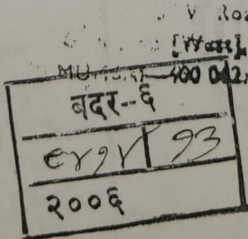 V Roa
[West],
MUMBAI-400 042,
बदर--६
९४१४ 93
२००६